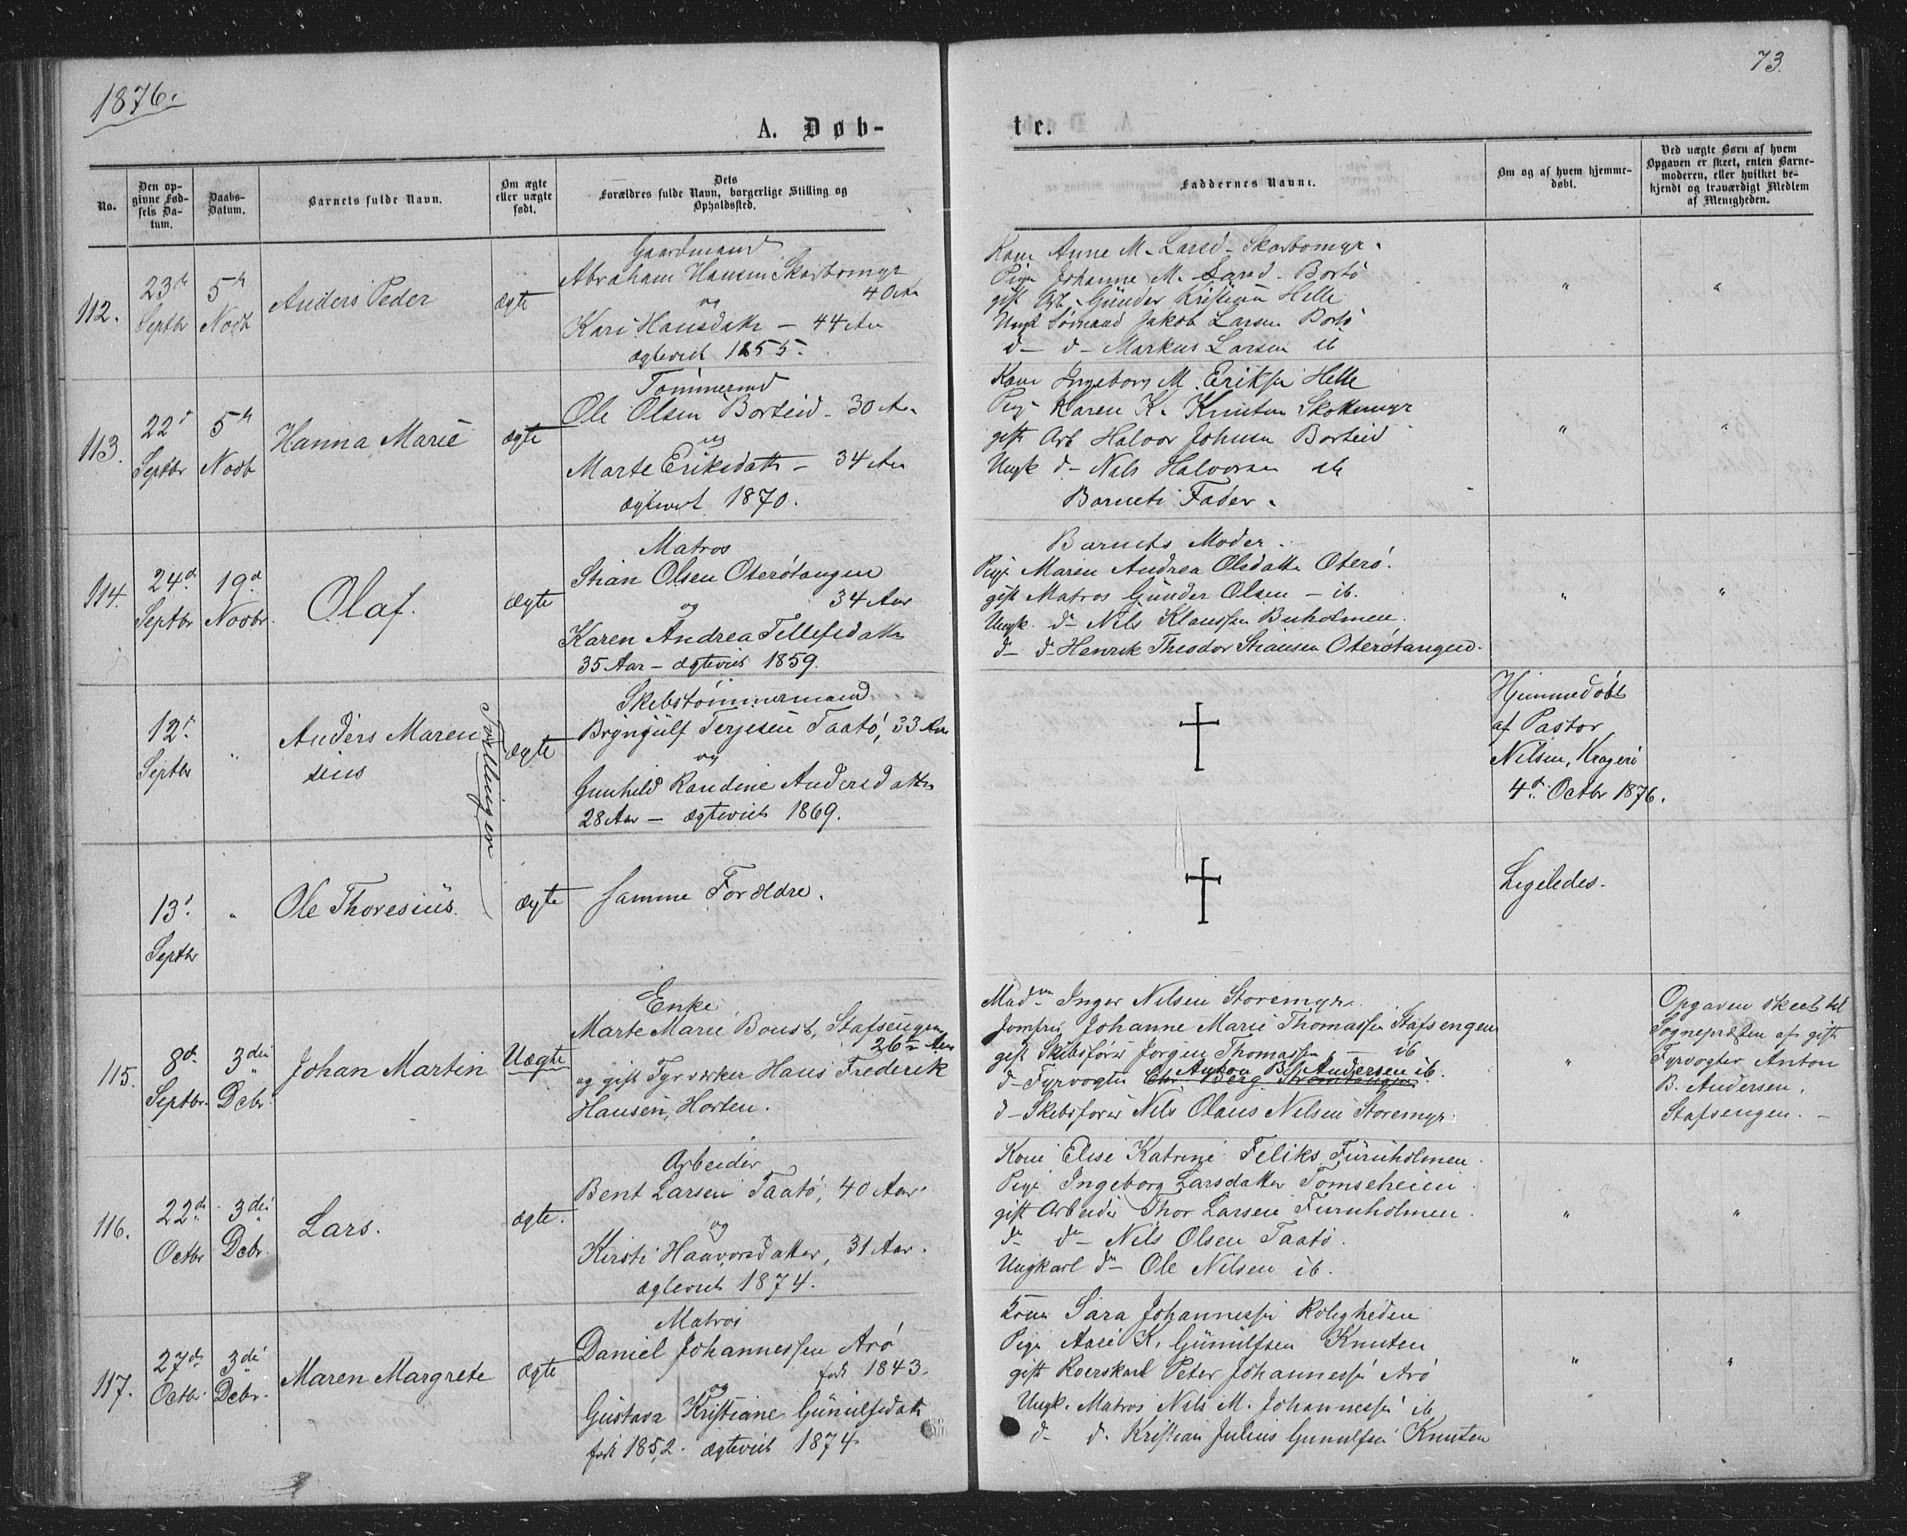 1876.
73.
A. Døb-
te.
No.
Den op-
givne Fød-
sels Da-
tum.
Daabs-
Datum.
Barnets fulde Navn.
Om ægte
eller uægte
født.
Dets
Forældres fulde Navn, borgerlige Stilling og
Opholdssted.
Faddernes Navne.
Om og af hvem hjemme-
døbt.
Ved uægte Børn af hvem
Opgaven er skeet, enten Barne-
moderen, eller hvilket be-
kjendt og troværdigt Medlem
af Menigheden.
112.
23de
Septbr
5te
Novb
Anders Peder
ægte
Gaardmand
Abraham Hansen Skarbomyr
40 Aar
og
Kari Hansdatt - 44 Aar
ægteviet 1855.
Kone Anne M. Larsd. Skarbomyr.
Pige Johanne M. Larsd. Bortø
gift Arb. Gunder Kristians Helle
Ungk Sømand Jakob Larsen Bortø
d- d- Markus Larsen ib
"
"
113.
22d
Septbr
5te
Novb
Hanna Marie
ægte
Tømmermd
Ole Olsen Borteid - 30 Aar
og
Marte Eriksdatt - 34 Aar
ægteviet 1870.
Kone Ingeborg M. Eriksen Helle
Pig Karen K. Knutsen Skottemyr
gift Arb Halvor Johnsen Borteid
Ungk d- Nils Halvorsen ib
Barnets Fader.
"
"
114.
24d
Septbr
19d
Novbr.
Olaf.
ægte
Matros
Stian Olsen Oterøtangen
34 Aar
og
Karen Andrea Tellefsdatter
35 Aar - ægteviet 1859.
Barnets Moder.
Pige Maren Andrea Olsdatter Oterø.
gift Matros Gunder Olsen - ib.
Ungk. d- Nils Klaussen Buholmen.
d- d- Henrik Theodor Stiansen Oterøtangen.
"
"
12d
Septbr
"
Anders Maren
sius
Tvillinger
ægte
Skibstømmermand
Bryngulf Terjesen Taatø, 33 Aar
og
Gunhild Randine Andersdatter
28 Aar - ægteviet 1869.
†
Hjemmedøbt
af Pastor
Nilsen, Kragerø
4d Octbr 1876.
13d
Septbr
"
Ole Thoresius.
ægte
Samme Forældre.
†
Ligeledes.
115.
8d.
Septbr.
3die
Debr.
Johan Martin
Uægte
Enke
Marte Marie Boust, Stafsengen
26 Aar
og gift Fyrværker Hans Frederik
Hansen, Horten.
Madm Inger Nilsen Storemyr.
Jomfru Johanne Marie Thomassen Stafsengen
gift Skibsfører Jørgen Thomassen - ib
Anton B. Andersen ib.
d- Fyrvogter Chr. Berg Strømtangen
d- Skibsfører Nils Olaus Nilsen Storemyr.
"
Opgaven skeet til
Sognepræsten af gift
Fyrvogter Anton
B. Andersen,
Stafsengen. -
116.
22de
Octbr
3die
Debr.
Lars.
ægte.
Arbeider
Bent Larsen Taatø, 40 Aar.
og
Kirsti Haavorsdatter, 31 Aar.
ægteviet 1874.
Kone Elise Katrine Feliks. Furuholmen.
Pige Ingeborg Larsdatter Tomseheien.
gift Arbeider Thor Larsen Furuholmen.
d- d- Nils Olsen Taatø.
Ungkarl d- Ole Nilsen ib.
"
"
117.
27de
Octbr.
3die
Debr.
Maren Margrete
ægte
Matros
Daniel Johannessen Arø
født 1843.
og
Gustava Kristiane Gunulfsdatt
født 1852. ægteviet 1874.
Kone Sara Johannessen Roligheden
Pige Aase K. Gunulfsen Knuten
gift Roerskarl Peter Johannessen Arø
Ungk. Matros Nils M. Johannessen ib
d- d. Kristian Julius Gunulfsen Knuten
"
"